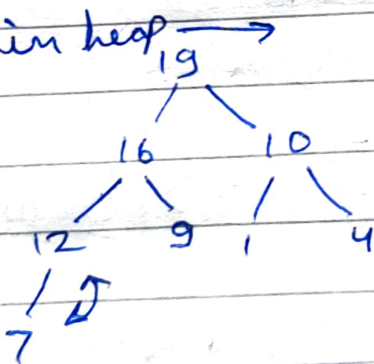 in heap →
19
16 10
12 9 1 4
7